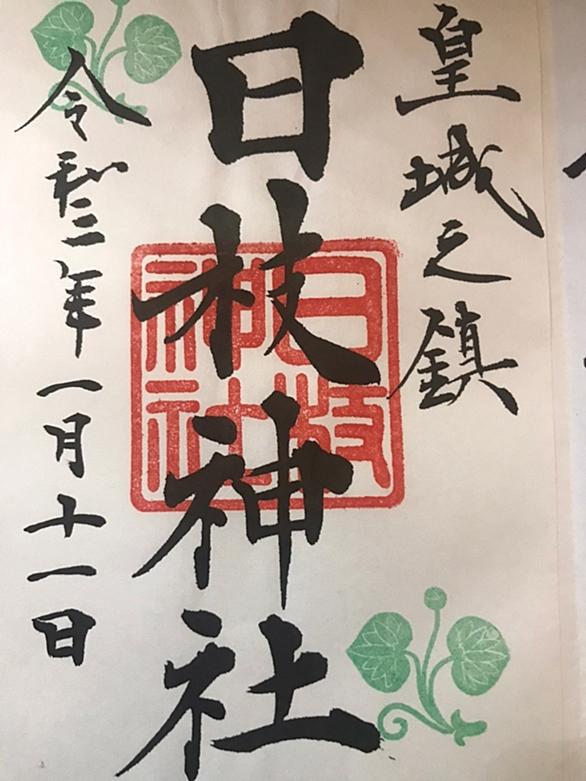 皇城之鎮
日枝神社
日枝神社
令和二年一月十一日